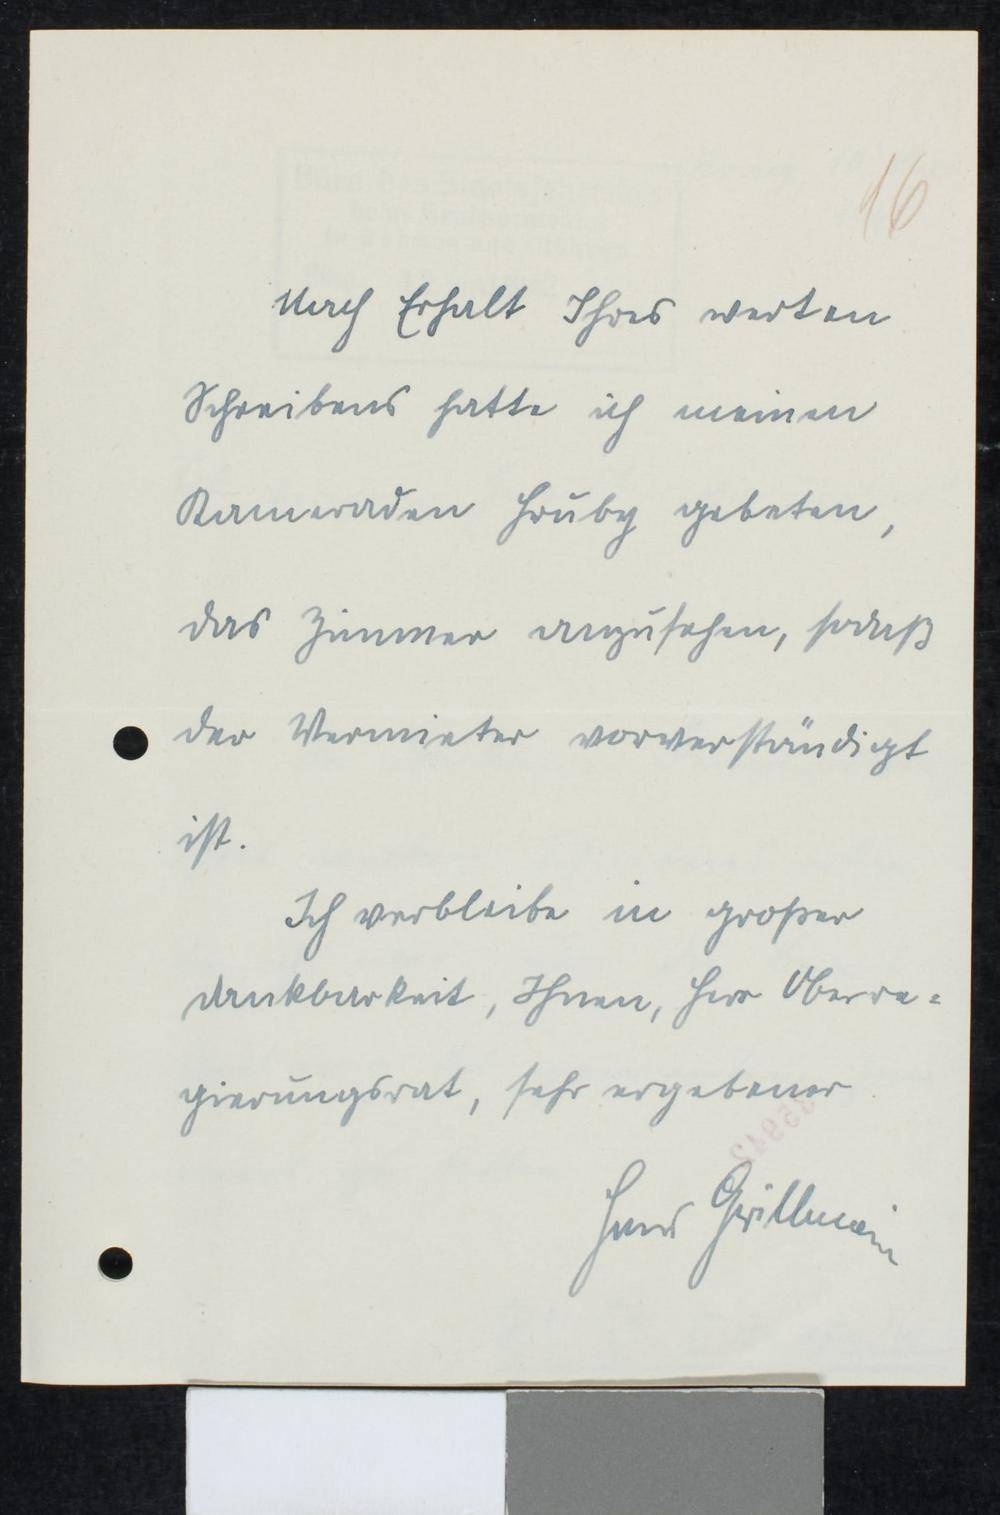 16
Nach Erhalt Ihres werten
Schreibens hatte ich meinen
Kameraden Hruby gebeten,
das Zimmer anzusehen, sodaß
der Vermieter vorverständigt
ist.
Ich verbleibe in großer
Dankbarkeit, Ihnen, Herr Oberre=
gierungsrat, sehr ergebener
Hans